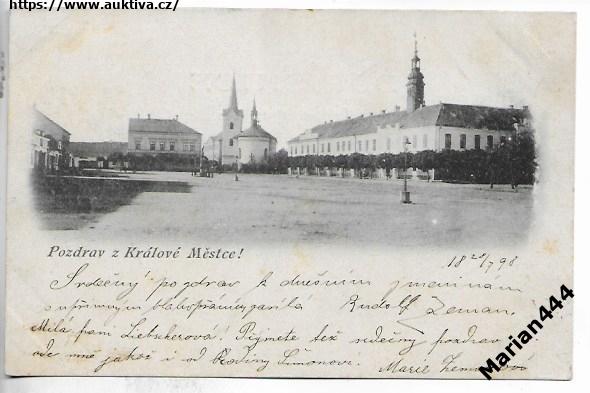 https://www.auktiva.cz/
Pozdrav z Králové Městce!
18 28/7 98
Srdečný pozdrav k dnešním jmeninám
s upřímným blahopřáním zasílá Rudolf Zeman,
Milá paní Liebscherová! Přijmete též srdečný pozdrav
ode mne jakož i od Rodiny Šimonovi. Marie Zemanová
Marian444